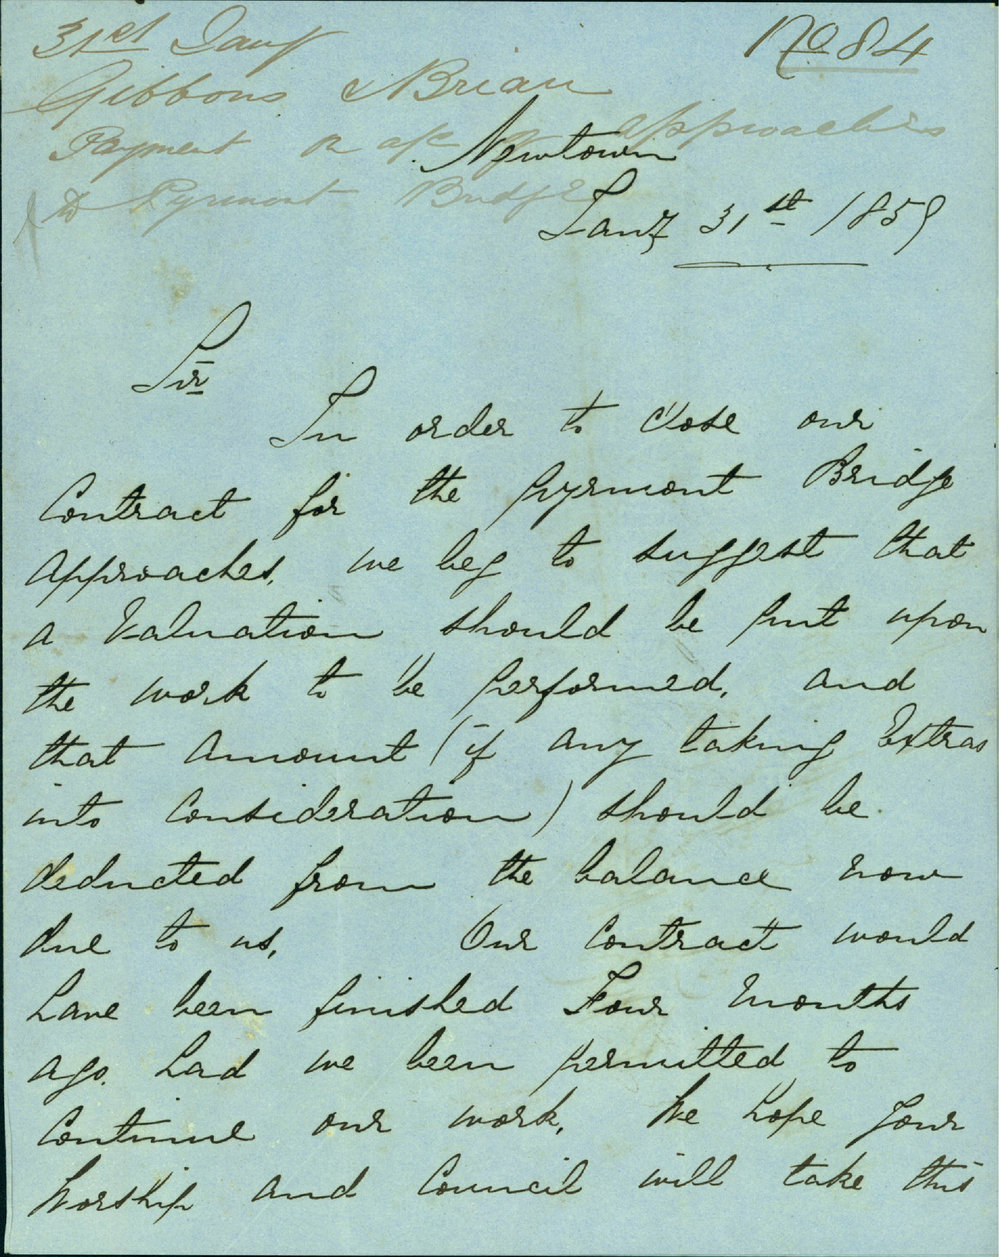 31st Jany
No 84
Gibbons & Brian
Payment on a/c of approaches
to Pyrmont Bridge
Newtown
Jany 31st 1859
Sir
In order to close our
Contract for the Pyrmont Bridge
Approaches, we beg to suggest that
a Valuation should be put upon
the work to be performed, and
that Amount (if any taking Extras
into Consideration) should be
deducted from the balance now
due to us, Our Contract would
have been finished Four Months
ago. had we been permitted to
Continue our work, We hope your
Worship and Council will take this